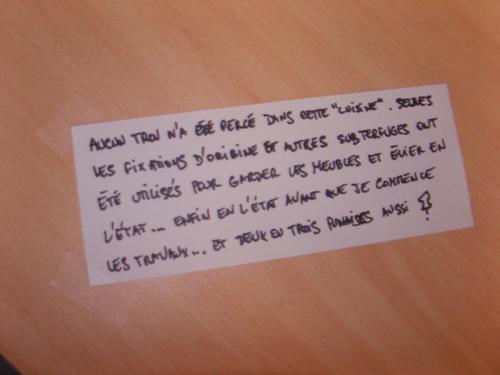 AUCUN TROU N'A ÉTÉ PERCÉ DANS CETTE "CUISINE". SEULES
LES FIXATIONS D'ORIGINE ET AUTRES SUBTERFUGES ONT
ÉTÉ UTILISÉS POUR GARDER LES MEUBLES ET ÉVIER EN
L'ÉTAT... ENFIN EN L'ÉTAT AVANT QUE JE COMMENCE
LES TRAVAUX... ET DEUX OU TROIS PUNAISES AUSSI !